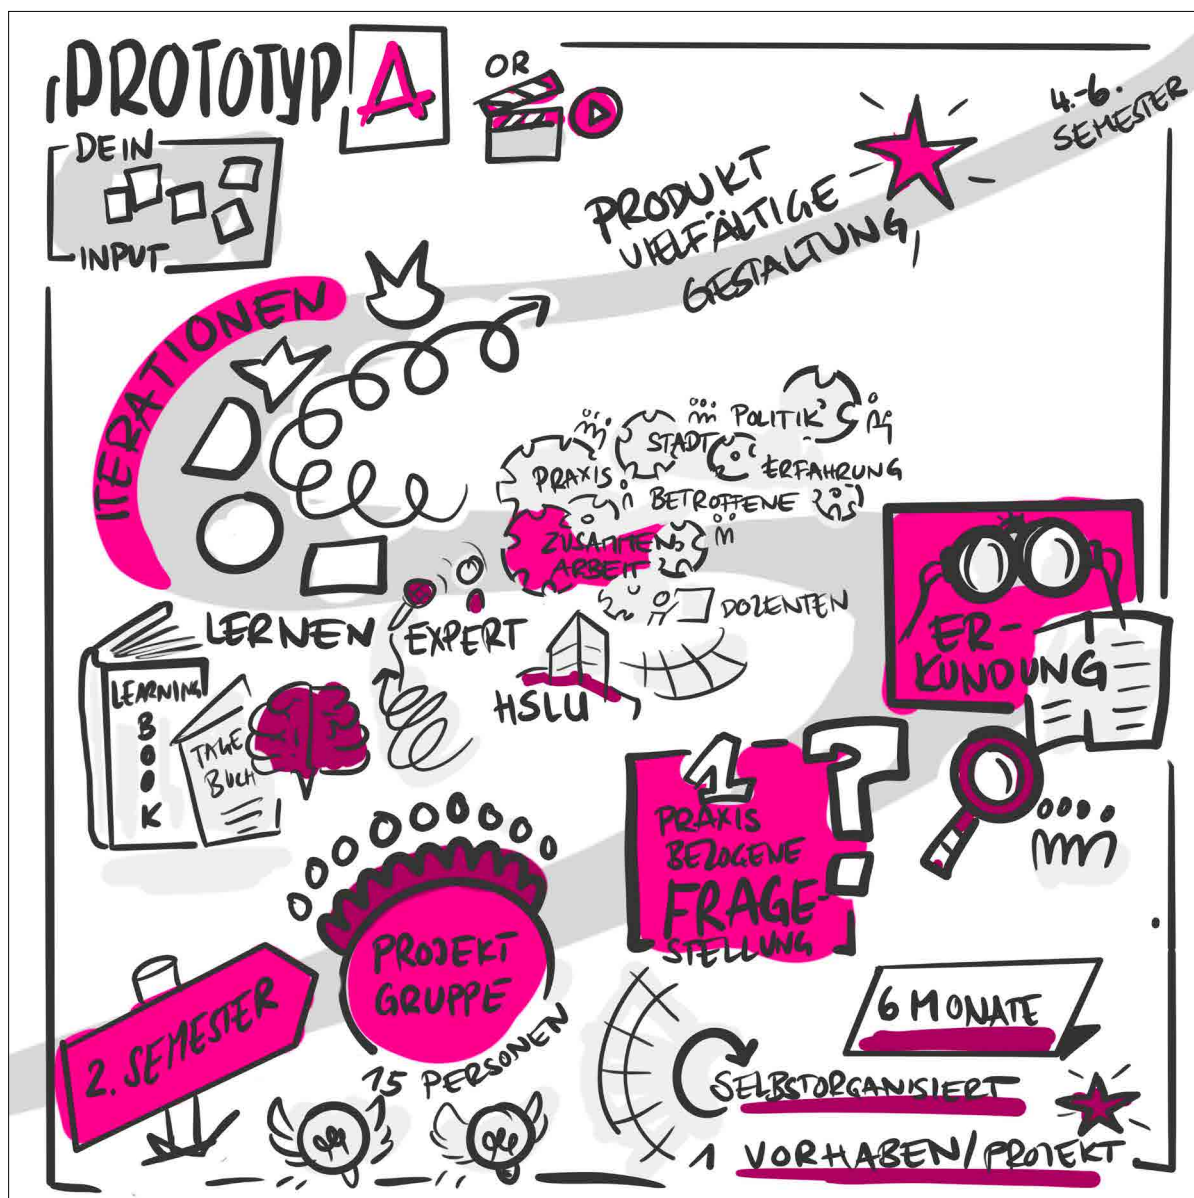 PROTOTYP A
OR
DEIN
INPUT
4.-6.
SEMESTER
PRODUKT
VIELFÄLTIGE
GESTALTUNG
ITERATIONEN
POLITIK
STADT
PRAXIS
ERFAHRUNG
BETROFFENE
ZUSAMMEN
ARBEIT
DOZENTEN
LERNEN
EXPERT
HSLU
ER-
KUNDUNG
LEARNING
BOOK
TAGE
BUCH
1
?
PRAXIS
BEZOGENE
FRAGE-
STELLUNG
PROJEKT
GRUPPE
15 PERSONEN
2. SEMESTER
6 MONATE
SELBSTORGANISIERT
1 VORHABEN/PROJEKT